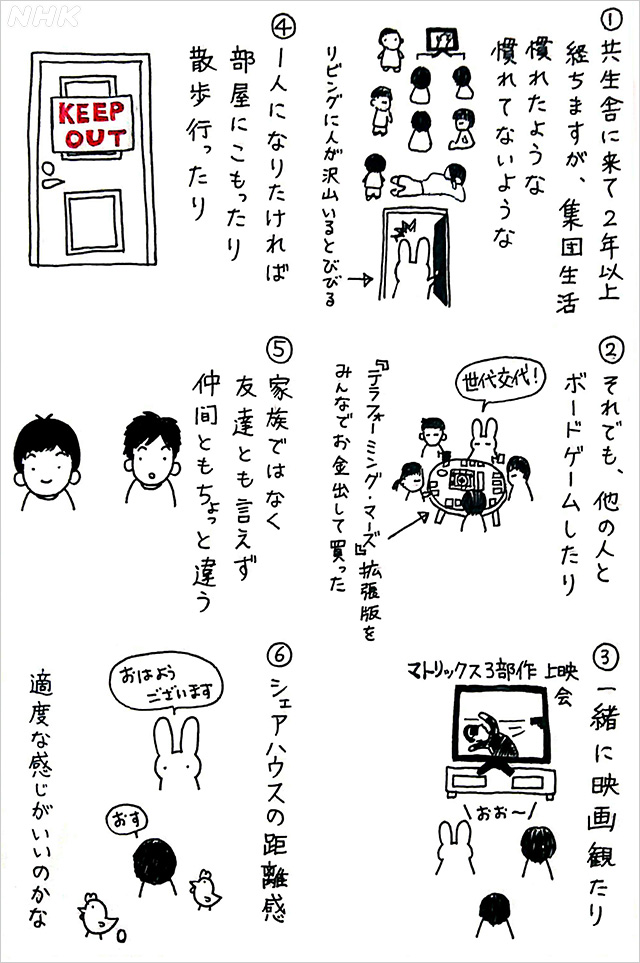 NHK
①共生舎に来て2年以上
経ちますが、集団生活
慣れたような
慣れてないような
リビングに人が沢山いるとびびる
②それでも、他の人と
ボードゲームしたり
世代交代!
『テラフォーミング・マーズ』拡張版を
みんなでお金出して買った
③一緒に映画観たり
マトリックス3部作 上映
会
おお〜
④1人になりたければ
部屋にこもったり
散歩行ったり
KEEP
OUT
⑤家族ではなく
友達とも言えず
仲間ともちょっと違う
⑥シェアハウスの距離感
おはよう
ございます
おす
適度な感じがいいのかな